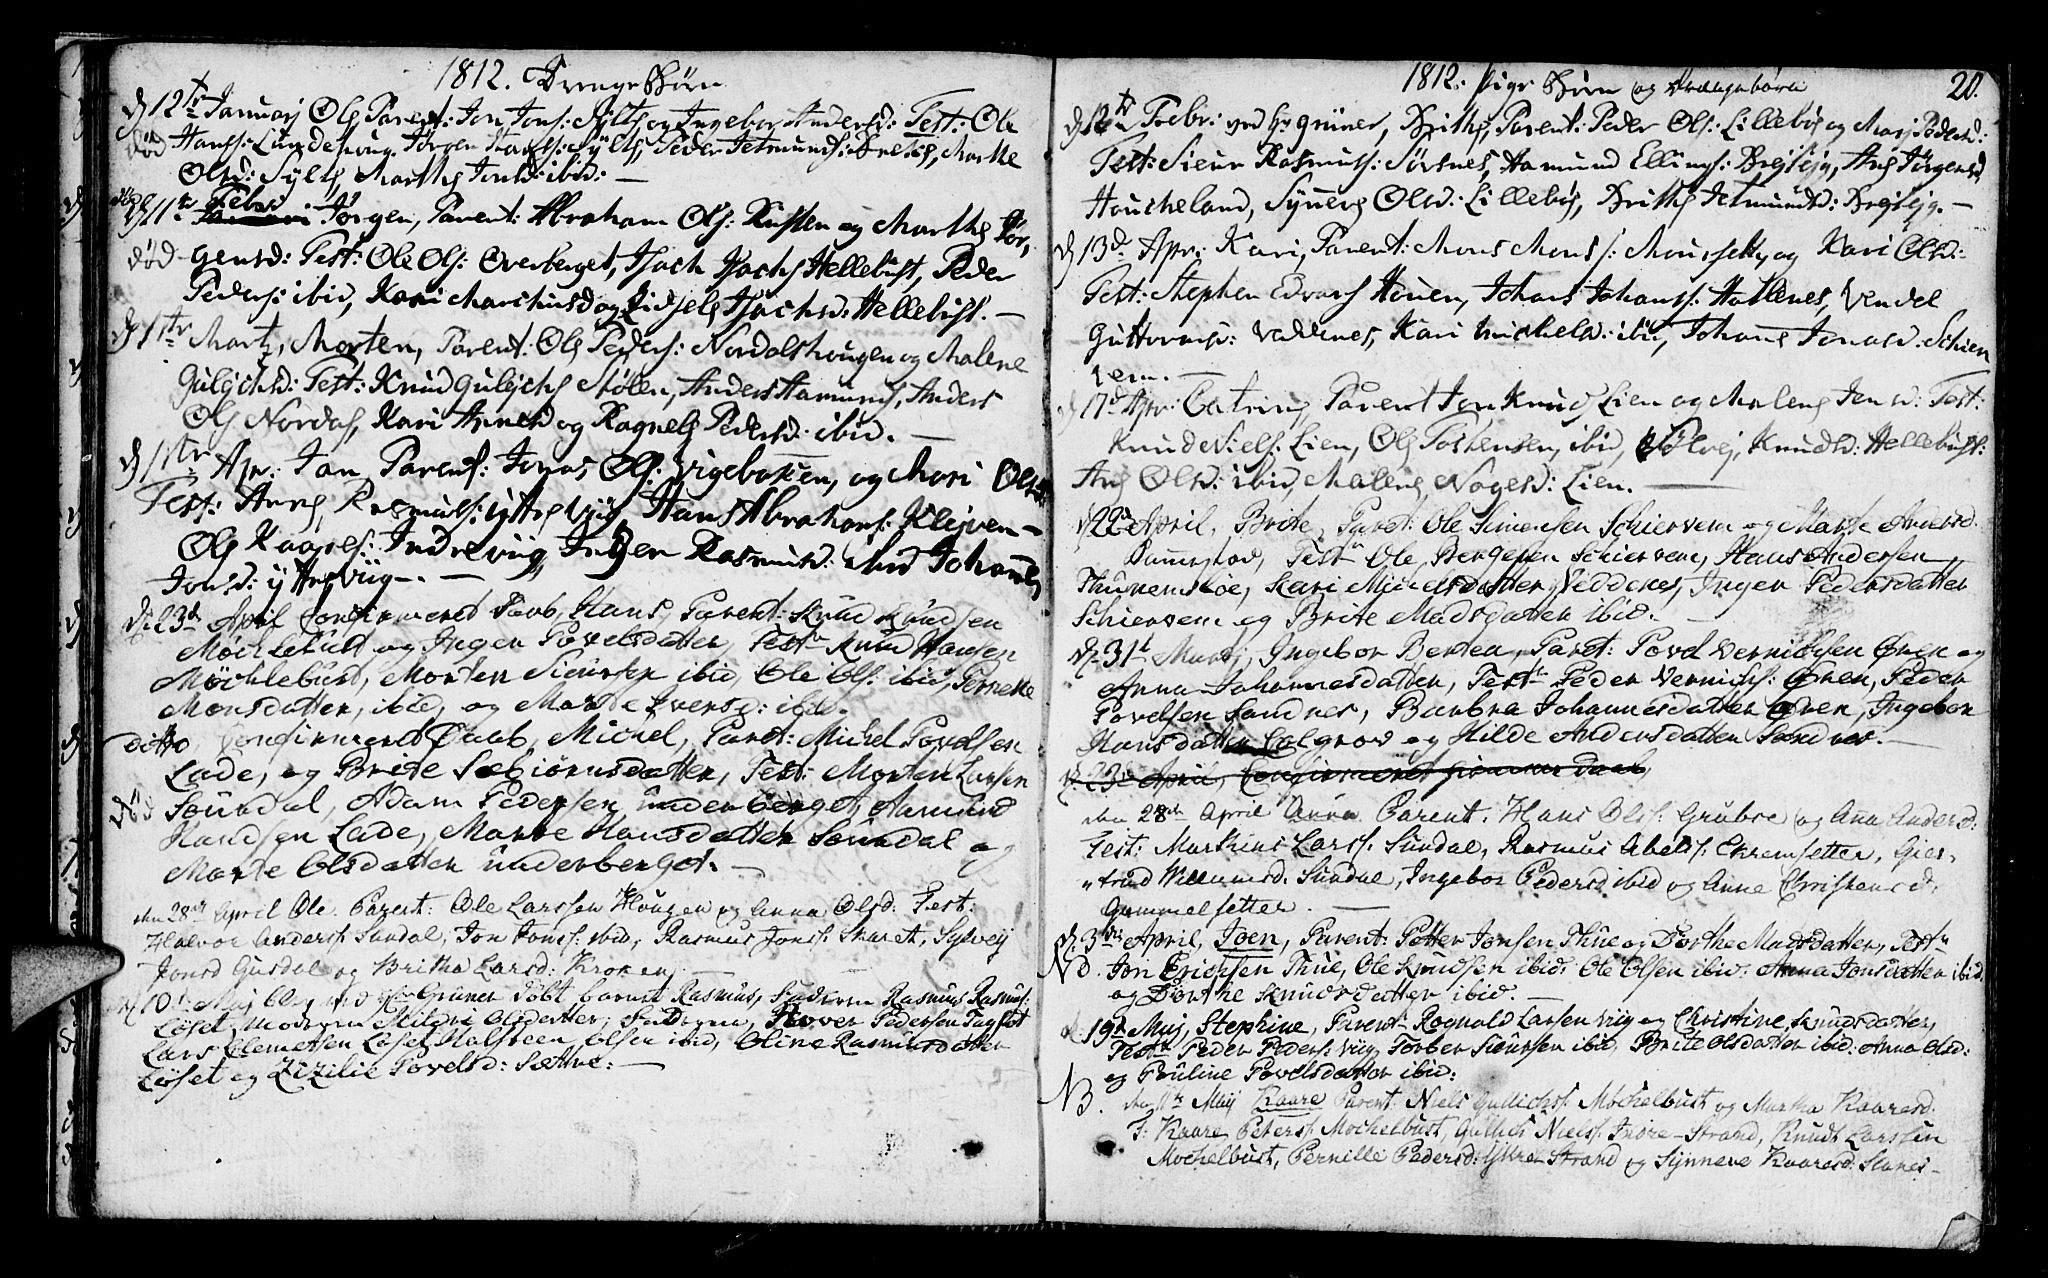 1812. Drenge Børn
d 12te Januarj Ole Parent: Jon Jons: Sylte og Ingebor Andersd: Test: Ole
død Hanss: Lundehoug, Jørgen Hanss: Sylte, Peder Jetmunds: Marthe
Olsd: Sylte, Marthe Jonsd: ibid: —
d 11te Febr: Jørgen, Parent: Abraham Ols: Rusten og Marthe Jør,
død gensd: Test: Ole Ols: Overberget, Isach Isachs Hellebust, Peder
Peders: ibid, Kari Marchusd og Lidsele Isachsd: Hellebust. —
d 1te Martz, Morten, Parent: Ole Peders: Nordalshougen og Malene
Gulichsd: Test: Knud Gulichs Stølen, Anders Aamunds, Anders
Ols Nordal, Kari Arnesd og Ragnele Pedersd: ibid. —
d 1te Apr: Jon Parent: Jonas Ols: Vigebakken, og Mari Olsd:
Test: Arne Rasmuss: ytreviig Hans Abrahams: Klejven —
Ole Kaarels: Indreviig, Inger Rasmusd: ibid Johanne
Jonsd: ytreviig. —
d: 23d April Confirmeret Daab, Hans, Parent: Knud Knudsen
Mochlebust og Inger Povelsdatter, Test Knud Hansen
Mochlebust, Morten Siursen ibid, Ole Ols: ibid, Pernelle
Monsdatter, ibid, og Marte Iversd: ibid.
ditto Confirmeret Daab, Michel, Parent: Michel Povelsen
Lade, og Brite Sæbiørnsdatter, Test: Morten Larsen
død Soundal, Adam Pedersen Underberget, Aamund
Handsen Lade, Marte Hansdatter Soundal og
Marte Olsdatter Underberget. —
den 28de April Ole. Parent: Ole Larssen Hougen og Anna Olsd: Test:
Halvor Anderss. Sundal, Jon Jonss: ibid, Rasmus Jonss: Skaret, Sylveij
Jonsd Gusdal og Britha Larsd: Kroken,
d 10de Maj blev ved Hr Grüner døbt barnet Rasmus, Faderen Rasmus Rasmus:
Løset, Moderen Mildri Olsdatter, Faderen, Hover Pedersen Tagset
Lars Clemetsen Løset, Halsteen Olsen ibid, Oline Rasmusdatter
Løset og Zizilie Povelsd: Sætre: —
1812. Pige Børn og Drængebørn 20.
d 12te Febr: ved Hr Grüner, Brithe, Parent: Peder Ols: Lillebøe og Marj Pedersd:
Test: Siur Rasmuss: Sørsnes, Aamund Ellings: Brejteig, Ane Jørgensd.
Houcheland, Synneve Olsd: Lillebøe, Brithe Jetmundsd: Brejteig. —
d 13de Apr: Kari, Parent: Mons Mons: Mousset, og Kari Olsd:
Test: Stephen Edvars Houen, Johans Johanss: Hatlenes, Vendel
Guttormsd: Vedlenes, Kari Michelsd: ibid, Johanne Jonasd: Schier
vem. —
d 17de Apr: Catrine, Parent Jon Knuds Lien og Malene Jensd: Test:
Knud Niels: Lien, Ole Tostensen, ibid, Sølvej, Knudsd: Hellebust:
Ane Olsd: ibid, Malene, Nagesd: Lien. —
d 22de April, Brite, Parent: Ole Simensen Schiervem og Marte Andersd.
Dammskov, Test Ole Bergesen Schiervem, Hans Andersen
Thunemsløe, Kari Michelsdatter Veddenes, Inger Pedersdatter
Schiervem og Brite Madsdatter ibid. —
d. 31te Martj, Ingebor Bertea, Parent: Povel Vernichsen Ören og
Anna Johannesdatter, Test: Peder Vernichs: Ören, Peder
Povelsen Sandnes, Barbra Johannesdatter Ören, Ingebor
Hansdatter Calgrov og Hilde Andersdatter Sandnes. —
d. 23de April, Confirmeret hiemmedaab,
den 28de April Anna Parent. Hans Ols: Grubse og Anna Andersd:
Test: Markus Larss. Sundal, Rasmus Abels: Ekremsetter, Gier,
trud Willumsd. Sundal, Ingebor Pedersd ibid og Anne Christensd.
Gammelsetter. —
d. 3de April, Joen, Parent: Petter Jonsen Thue og Dorthe Madsdatter, Test:
Nd. Jon Erichsen Thue, Ole Knudsen ibid: Ole Olsen ibid: Anna Jonsdatter ibid
og Dorthe Knudsdatter ibid. —
d. 19de Maj, Stephine, Parent Rognald Larsen Viig og Christine Knudsdatter,
Test: Peder Peders: Viig, Torber Siursen ibid, Brite Olsdatter ibid: Anna Olsd:
og Pouline Povelsdatter ibid:
NB. den 11te Maij Kaare Parent: Niels Gulichss. Mochelbust og Martha Kaaresd.
T: Kaare Peterss Mochelbust, Gullich Niels. Indre-Strand, Knudt Larssen
Mochelbust, Pernille Pedersd: Ytter Strand og Synneve Kaaresd: Slanes —